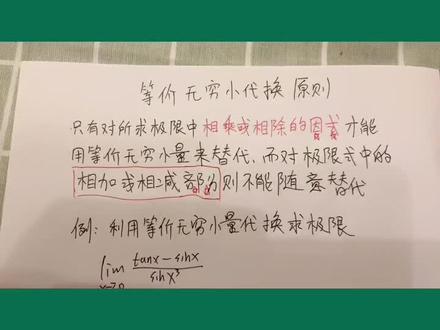 等价无穷小代换原则
只有对所求极限中相乘或相除的因式才能
用等价无穷小量来替代、而对极限式中的
相加或相减部分则不能随意替代
例：利用等价无穷小量代换求极限
lim x→0 (tanx-sinx)/(sinx³)